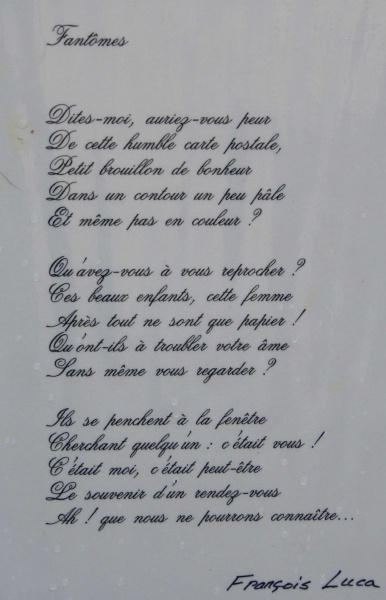 Fantômes
Dites-moi, auriez-vous peur
De cette humble carte postale,
Petit brouillon de bonheur
Dans un contour un peu pâle
Et même pas en couleur ?
Qu'avez-vous à vous reprocher ?
Ces beaux enfants, cette femme
Après tout ne sont que papier !
Qu'ont-ils à troubler votre âme
Sans même vous regarder ?
Ils se penchent à la fenêtre
Cherchant quelqu'un : c'était vous !
C'était moi, c'était peut-être
Le souvenir d'un rendez-vous
Ah ! que nous ne pourrons connaître...
François Luca